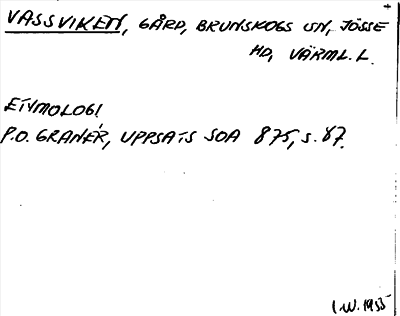 VASSVIKEN, GÅRD, BRUNSKOGS SN, JÖSSE
HD, VÄRML. L.
ETYMOLOGI
P.O. GRANÉR, UPPSATS SOA 875, S. 87.
I.W. 1955